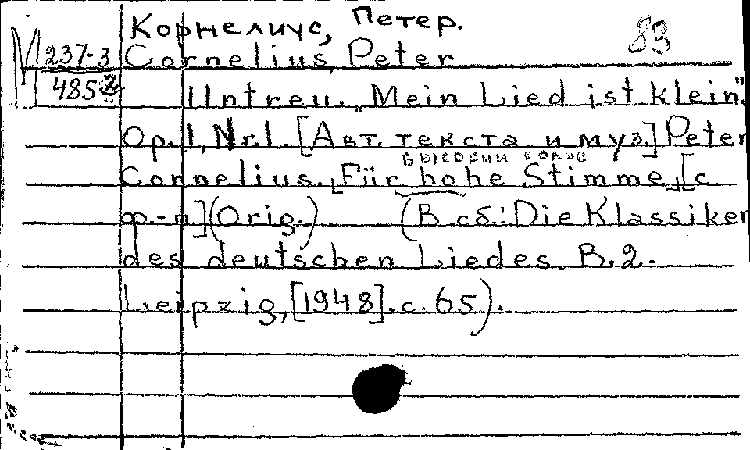 Корнелиус, Петер.
83
М 237-3 Cornelius, Peter
485 Untreu. „Mein Lied ist klein".
Op. 1, Nr. 1. [Авт. текста и муз.] Peter
высокий голос
Cornelius. Für hohe Stimme [с
ф-п] (Orig.) (В сб: Die Klassiker
des deutschen Liedes. B. 2.
Leipzig, [1948]. с. 65).